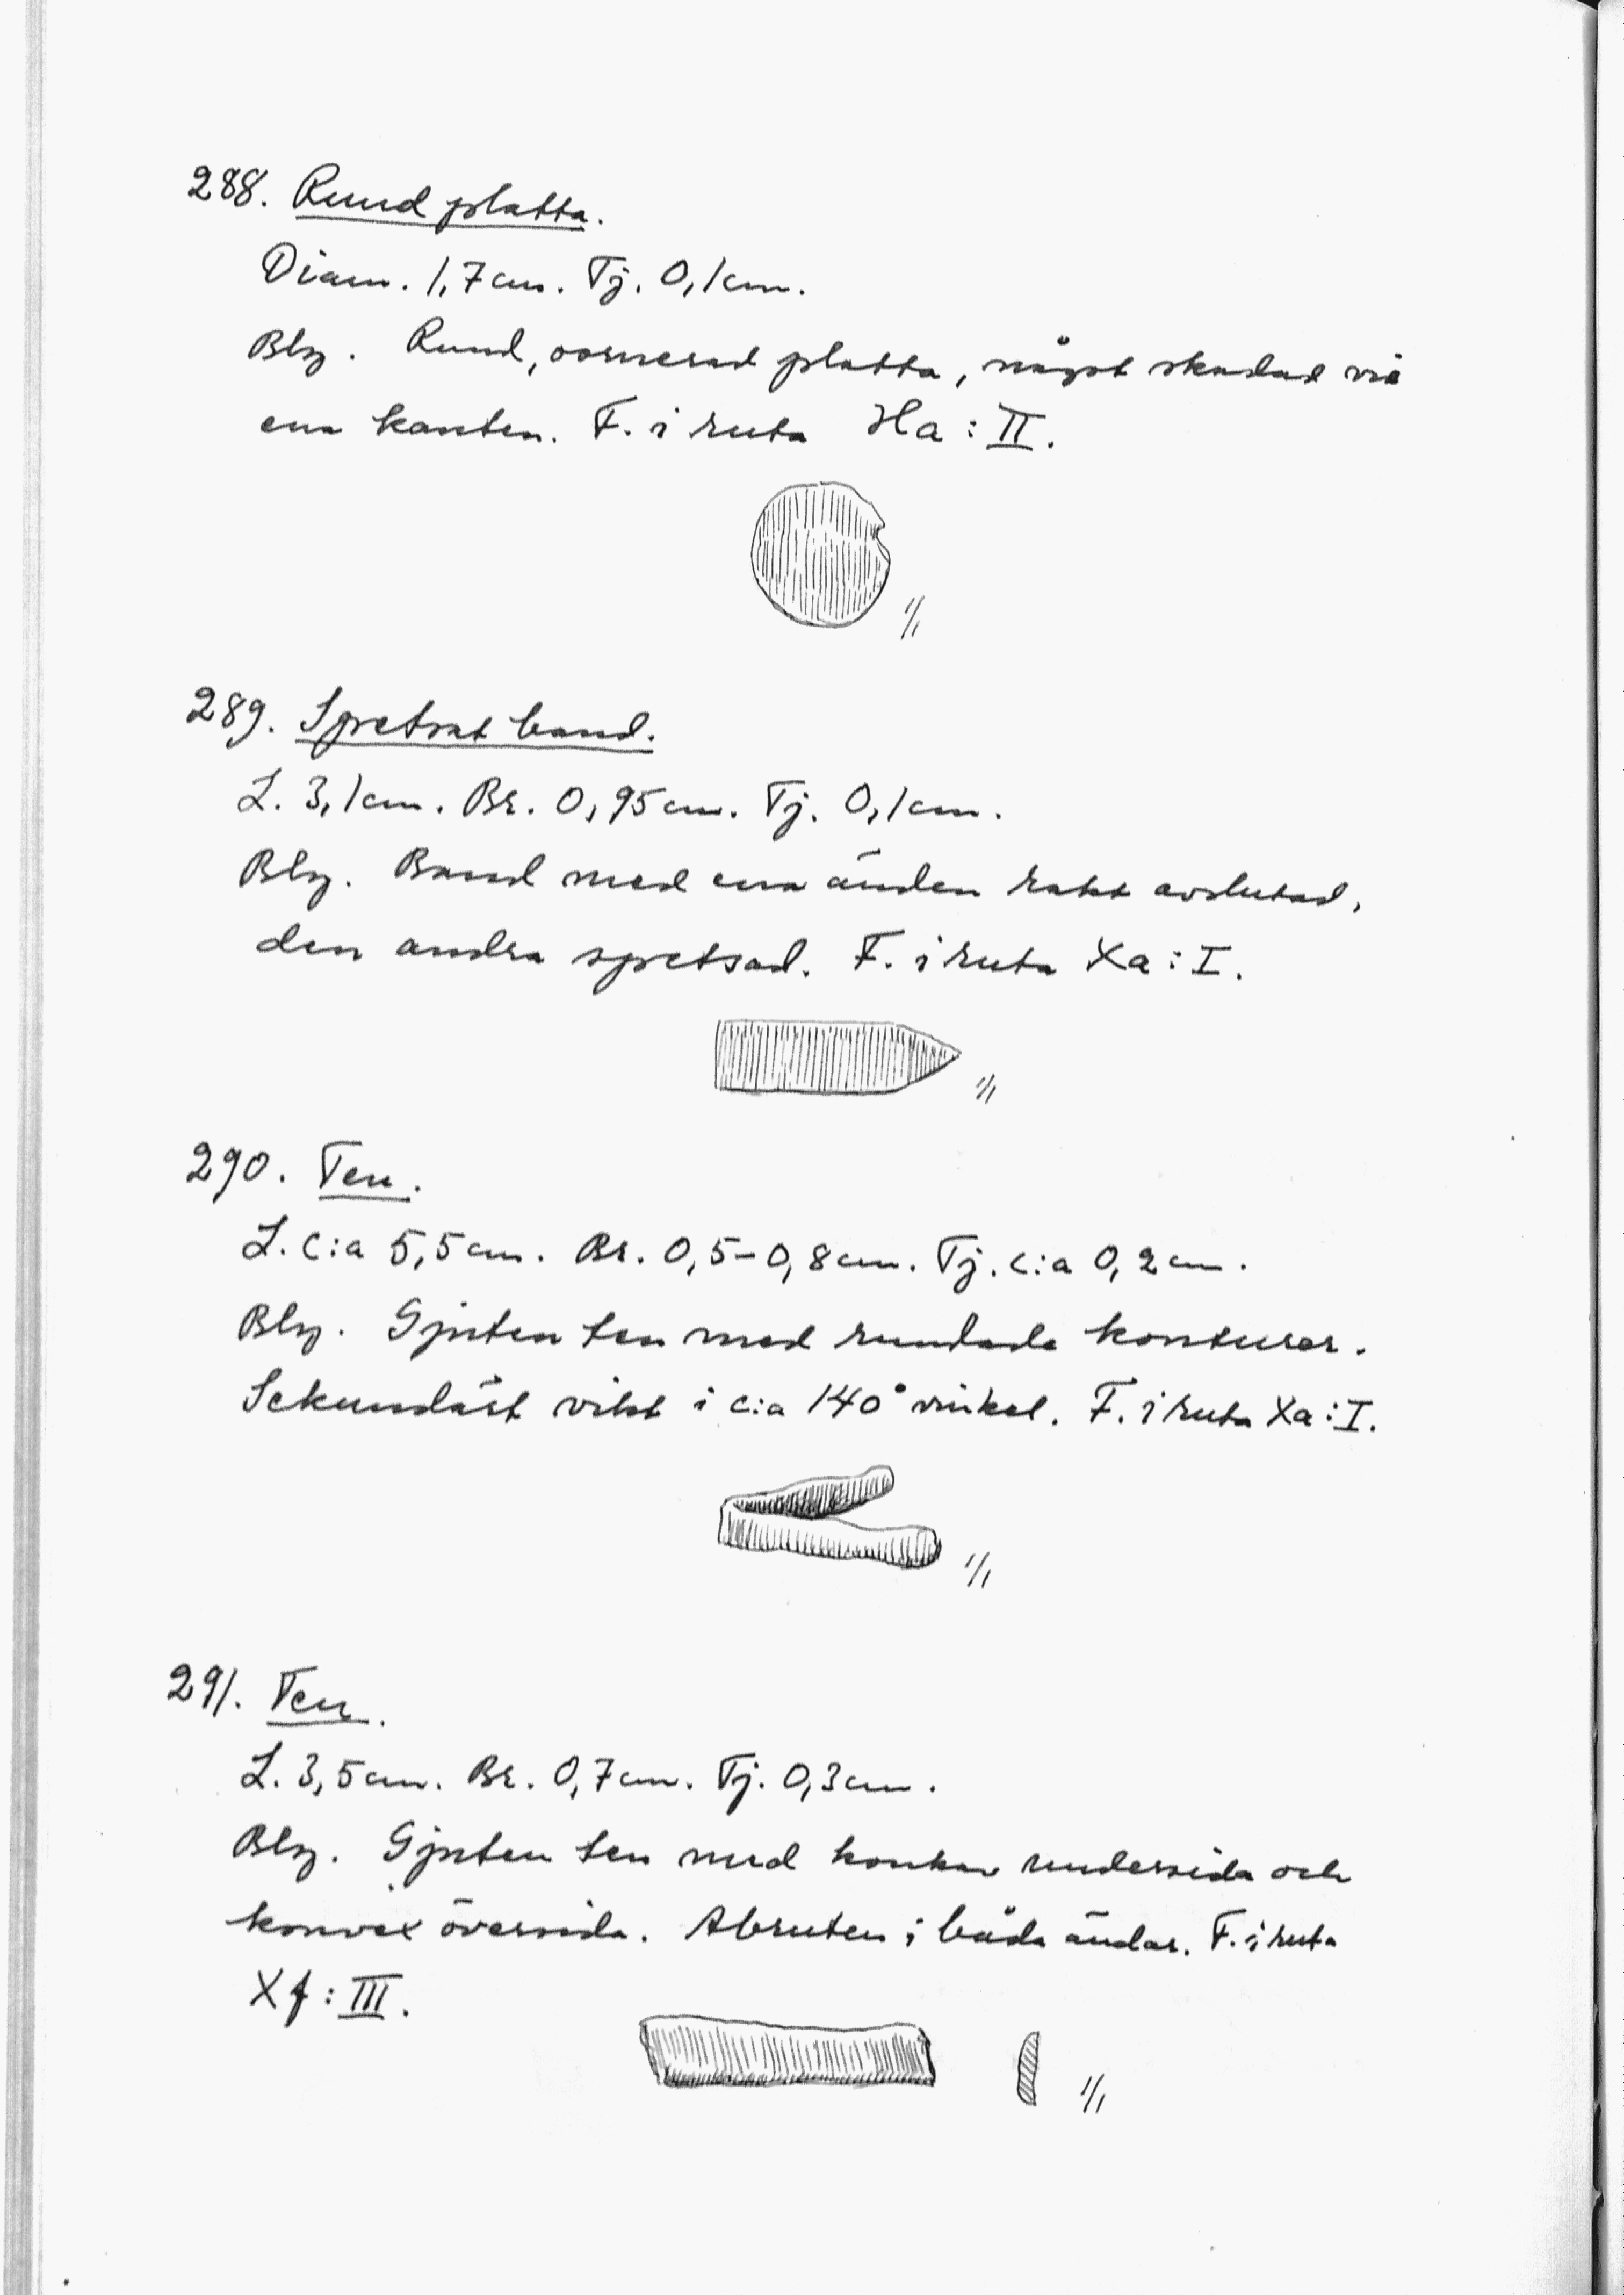 288. Rund platta.
Diam. 1,7 cm. Tj. 0,1 cm.
Blg. Rund, oornerad platta, något skadad vid
ena kanten. F. i ruta Ha : II.
1/1
289. Spetsat band.
L. 3,1 cm. Br. 0,95 cm. Tj. 0,1 cm.
Blg. Band med ena änden rakt avslutad,
den andra spetsad. F. i ruta Xa : I.
1/1
290. Ten.
L. c:a 5,5 cm. Br. 0,5-0,8 cm. Tj. c:a 0,2 cm.
Blg. Gjuten ten med rundade konturer.
Sekundärt vikt i c:a 140° vinkel. F. i ruta Xa : I.
1/1
291. Ten.
L. 3,5 cm. Br. 0,7 cm. Tj. 0,3 cm.
Blg. Gjuten ten med konkav undersida och
konvex översida. Abruten i båda ändar. F. i ruta
Xf : III.
1/1